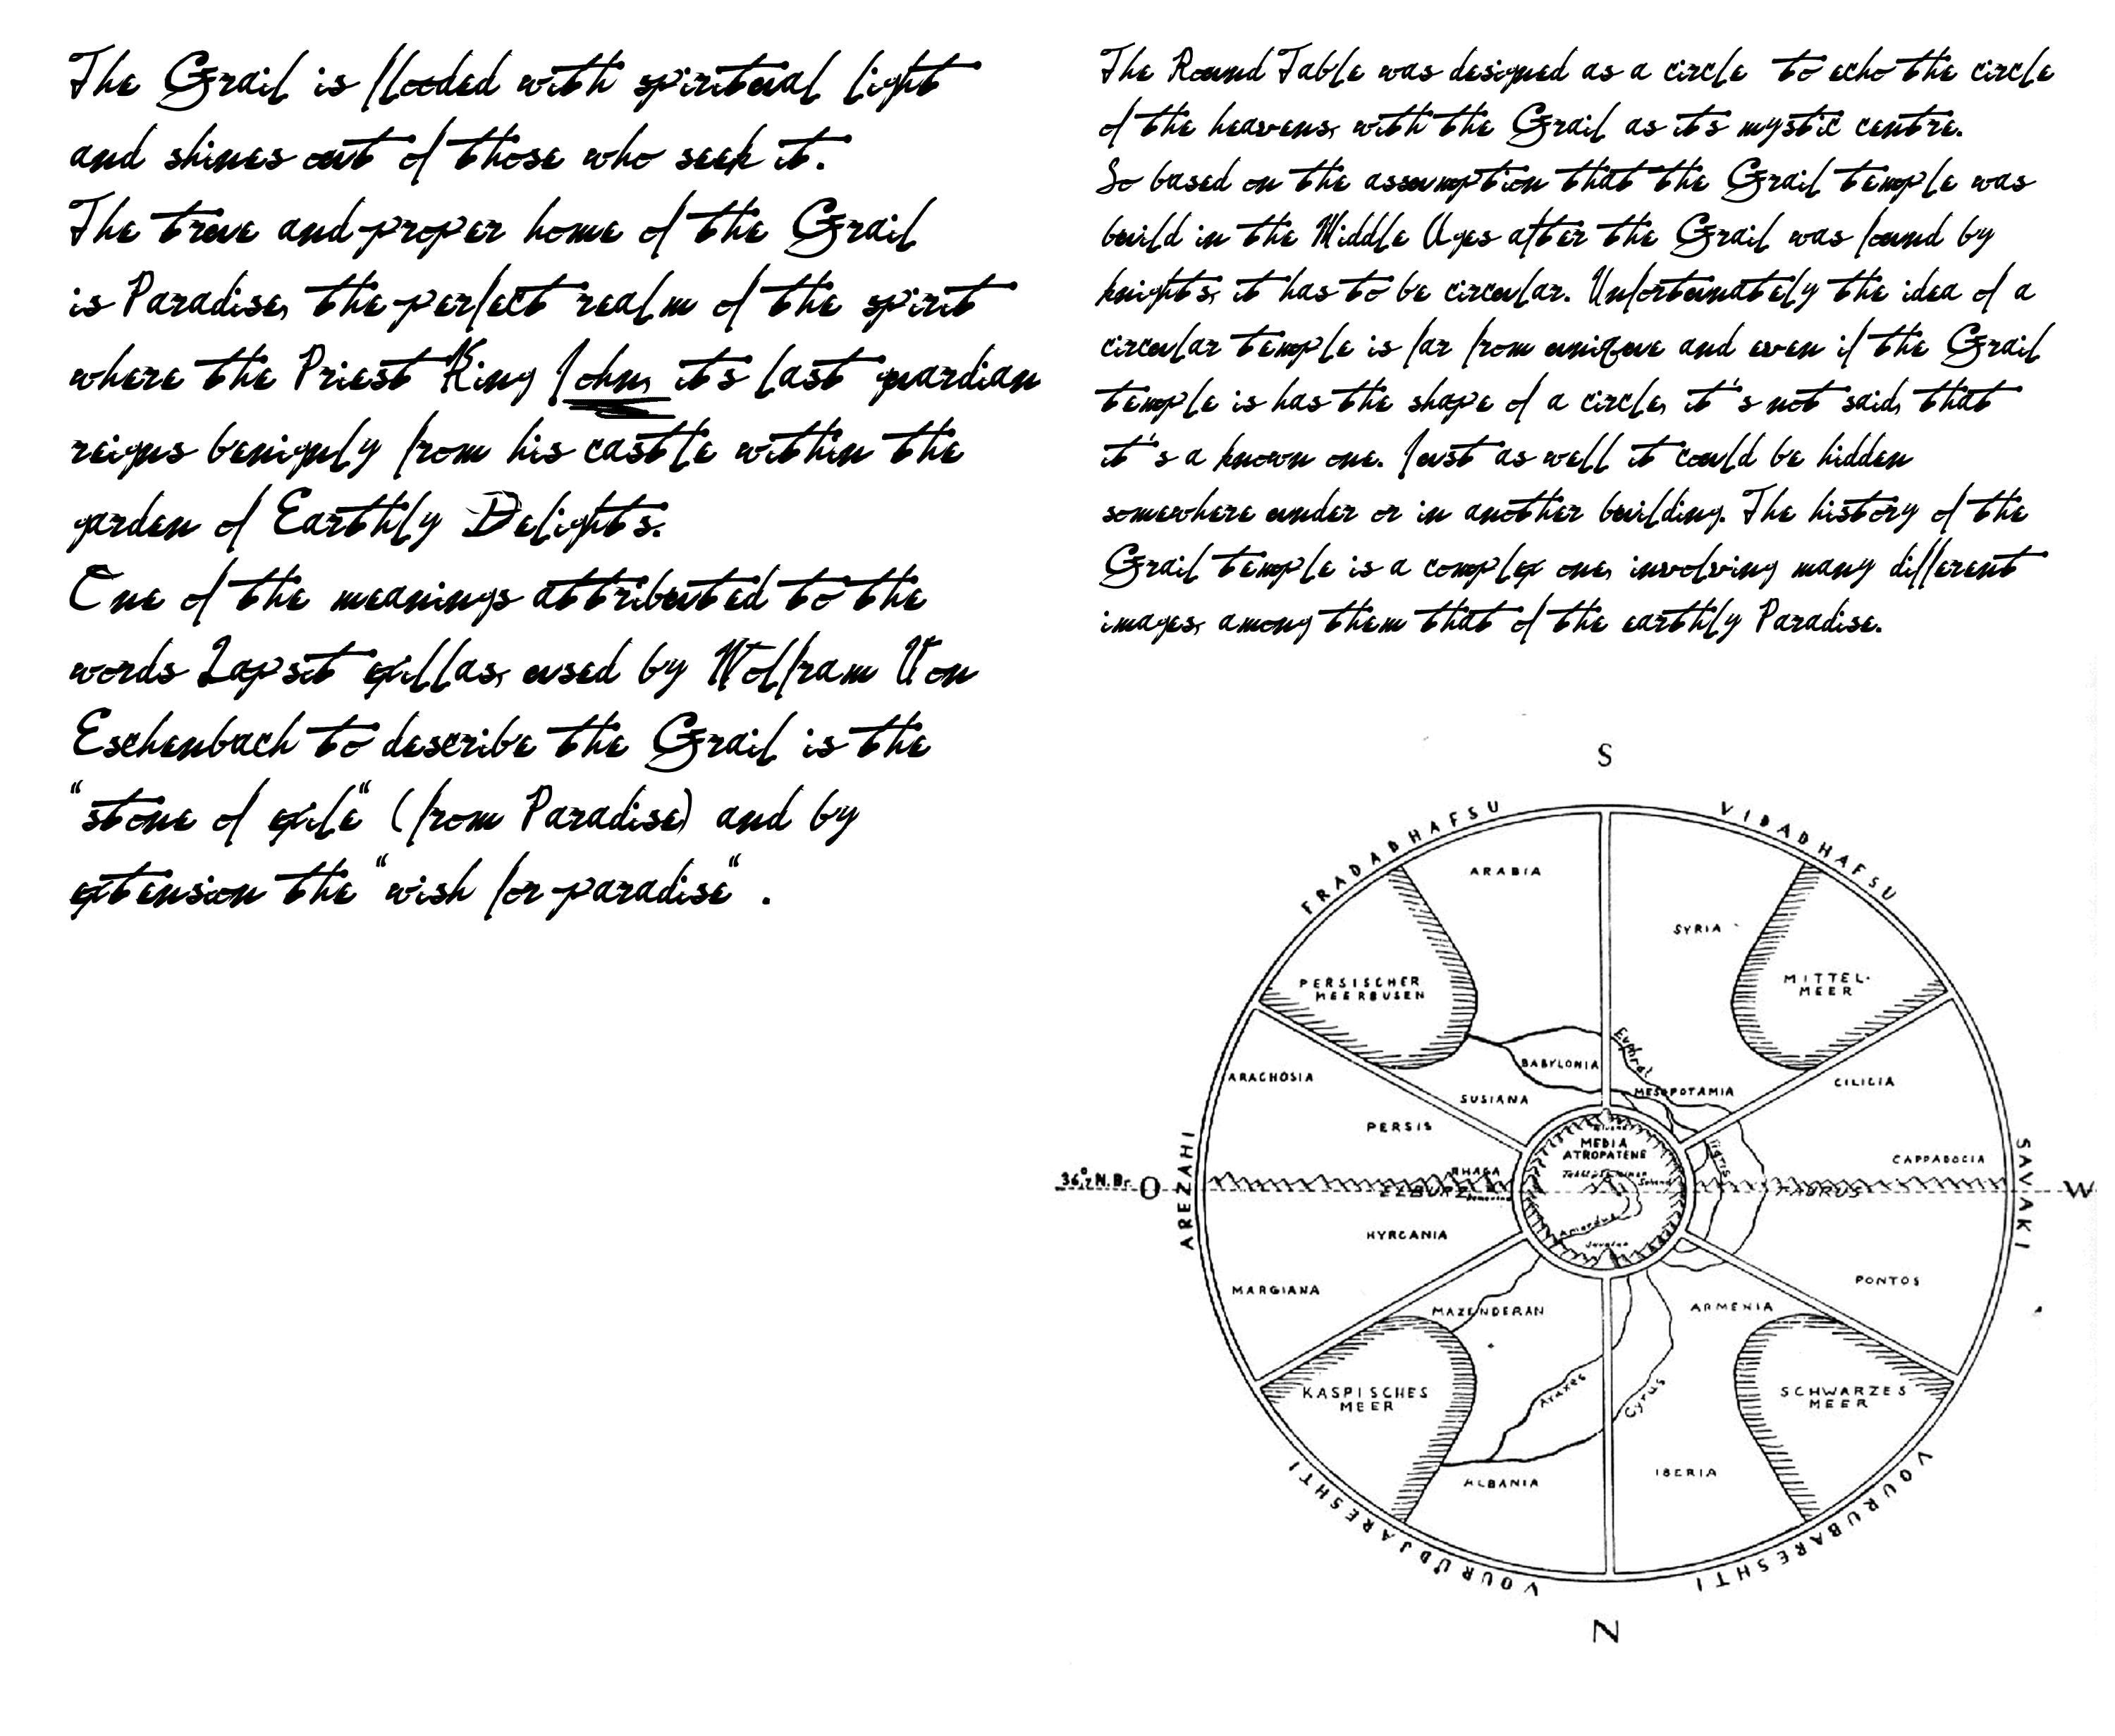 The Grail is flooded with spiritual light
and shines out of those who seek it.
The true and proper home of the Grail
is Paradise, the perfect realm of the spirit
where the Priest King John, its last guardian
reigns benignly from his castle within the
garden of Earthly Delights.
One of the meanings attributed to the
words Lapsit exillas, used by Wolfram Von
Eschenbach to describe the Grail is the
"stone of exile" (from Paradise) and by
extension the "wish for paradise".
The Round Table was designed as a circle to echo the circle
of the heavens, with the Grail as its mystic centre.
So based on the assumption that the Grail temple was
build in the Middle Ages after the Grail was found by
knights, it has to be circular. Unfortunately the idea of a
circular temple is far from unique and even if the Grail
temple is has the shape of a circle, it's not said, that
it's a known one. Just as well it could be hidden
somewhere under or in another building. The history of the
Grail temple is a complex one, involving many different
images, among them that of the earthly Paradise.
S
FRADADHAFSU
VIDADHAFSU
ARABIA
SYRIA
PERSISCHER
MEERBUSEN
MITTEL-
MEER
Euphrat
BABYLONIA
ARACHOSIA
SUSIANA
MESOPOTAMIA
CILICIA
PERSIS
MEDIA
ATROPATENE
Tigris
AREZAHI
SAVAKI
RHAGA
CAPPADOCIA
36°,7 N.Br.
O
ELBURZ
TAURUS
W
Amardus
HYRCANIA
MARGIANA
PONTOS
MAZENDERAN
ARMENIA
KASPISCHES
MEER
Araxes
Cyrus
SCHWARZES
MEER
ALBANIA
IBERIA
VOURUDJARESHTI
VOURUBARESHTI
N